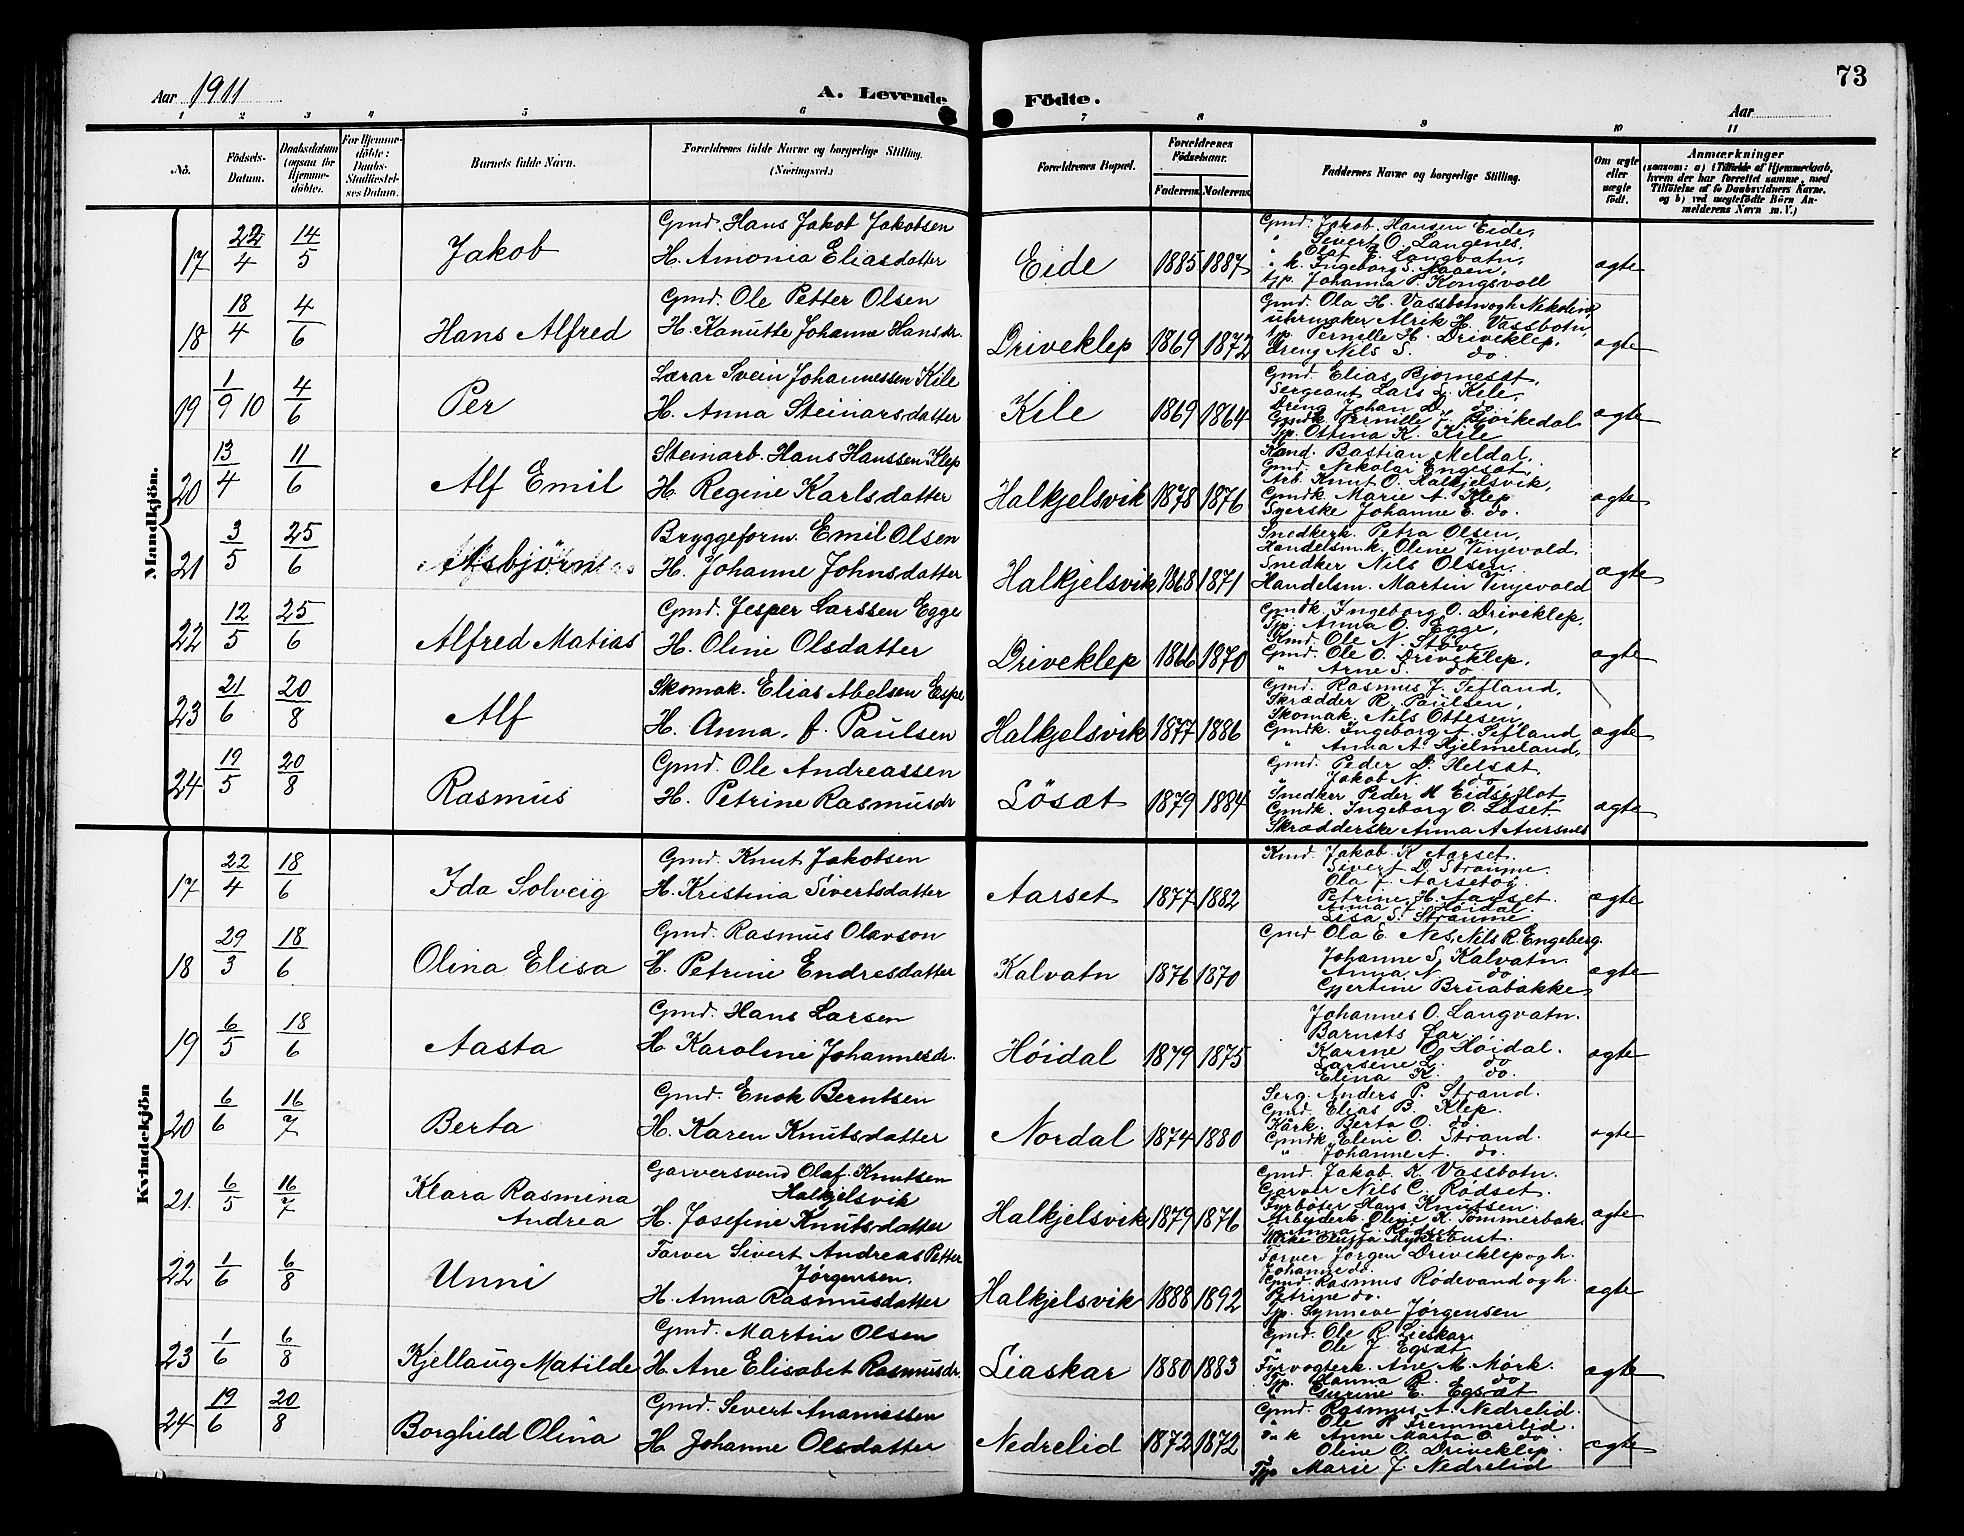 73
Aar 1911
A. Levende Födte.
Aar
1 2 3 4 5 6 7 8 9 10 11
No.
Födsels-Datum.
Daabsdatum (ogsaa for Hjemmedöbte).
For Hjemmedöbte: Daabs-Stadfæstelses Datum.
Barnets fulde Navn.
Forældrenes fulde Navne og borgerlige Stilling. (Næringsvei.)
Forældrenes Bopæl.
Forældrenes Födselsaar.
Faderens. Moderens.
Faddernes Navne og borgerlige Stilling.
Om ægte eller uægte födt.
Anmærkninger
(saasom: a) i Tilfælde af Hjemmedaab, hvem der har forrettet samme, med Tilföielse af to Daabsvidners Navne, og b) ved uægtefödte Börn Anmelderens Navn m. V.)
Mandkjön.
17 22/4 14/5 Jakob
Gmd. Hans Jakob Jakobsen
H. Amonia Eliasdatter
Eide 1885 1887
Gmd. Jakob Hansen Eide,
" Sivert O. Langenes,
" Olaf E. Langvatn,
" k. Ingeborg S. Aaaen,
Gp. Johanna P. Kongsvoll
ægte
18 18/4 4/6 Hans Alfred
Gmd. Ole Petter Olsen
H. Kanutte Johanna Hansdr.
Driveklep 1869 1872
Gmd. Ola H. Vassbotn og h. Nekolina
uhrmaker Alrik H. Vassbotn,
Gp. Pernille H. Driveklep,
Dreng Nils S. do
ægte
19 1/9 10 4/6 Per
Lærar Svein Johannessen Kile
H. Anna Steinarsdatter
Kile 1869 1864
Gmd. Elias Bjørneset,
Sergeant Lars S. Kile,
Dreng Johan D. do
Gmdk. Pernille J. Bjørkedal
Gp. Ottina K. Kile
ægte
20 13/4 11/6 Alf Emil
Steinarb. Hans Hanssen Klep
H. Regine Karlsdatter
Halkjelsvik 1878 1876
Kand. Bastian Meldal,
Gmd. Nekolai Engeset,
Arb. Knut O. Halkjelsvik,
Gmdk. Marie A. Klep
Syerske Johanne E. do.
ægte
21 3/5 25/6 Asbjørn
Bryggeform. Emil Olsen
H. Johanne Johnsdatter
Halkjelsvik 1868 1871
Snedkerk. Petra Olsen,
Handelsm.k. Oline Vinjevold.
Snedker Nils Olsen,
Handelsm. Martin Vinjevold
ægte
22 12/5 25/6 Alfred Matias
Gmd. Jesper Larssen Egge
H. Oline Olsdatter
Driveklep 1866 1870
Gmdk. Ingeborg O. Driveklep,
Gp. Anna O. Egge,
Gmd. Ole N. Støve
Gmd. Ole O. Driveklep,
" Arne S. do
ægte
23 21/6 20/8 Alf
Skomak. Elias Abelsen Espe
H. Anna. f. Paulsen
Halkjelsvik 1877 1886
Gmd. Rasmus J. Sefland,
Skrædder R. Paulsen,
Skomak. Nils Ottesen,
Gmdk. Ingeborg A. Sefland
" Anna A. Hjelmeland,
ægte
24 19/5 20/8 Rasmus
Gmd. Ole Andreassen
H. Petrine Rasmusdr
Løsæt 1879 1884
Gmd. Peder D. Helsæt,
" Jakob N. do
Snedker Peder M Eidseflot,
Gmdk. Ingeborg O. Løset.
Skrædderske Anna A Aursnes
ægte
Kvindekjön
17 22/4 18/6 Ida Solveig
Gmd. Knut Jakobsen
H. Kristina Sivertsdatter
Aarset 1877 1882
Gmd. Jakob K Aarset.
Sivert D. Straume.
Ola J. Aarsetøg.
Petrine H. Aarset.
Anna L. Høidal.
Lisa S. Straume
ægte
18 29/3 18/6 Olina Elisa
Gmd. Rasmus Olavson
H. Petrine Endresdatter
Kalvatn 1876 1870
Gmd Ola E. Nes, Nils R. Engeberg.
Johanne S. Kalvatn.
Anna N. do
Gjertine Bruabakke
ægte
19 6/5 18/6 Aasta
Gmd. Hans Larsen
H. Karoline Johannesdr.
Høidal 1879 1875
Johannes O. Langvatn.
Barnets Far.
Karine O. Høidal.
Larsene L. do
Elina K. do.
ægte
20 6/6 16/7 Berta
Gmd. Enok Berntsen
H. Karen Knutsdatter
Nordal 1874 1880
Serg. Anders P. Strand.
Gmd. Elias B. Klep.
Kårk. Berta O. do.
Gmdk. Eline O. Strand.
" Johanne A. do.
ægte
21. 6/5 16/7 Klara Rasmina Andrea
Garversvend Olaf. Knutsen
Halkjelsvik
H. Josefine Knutsdatter
Halkjelsvik 1879 1876
Gmd. Jakob K. Vassbotn.
Garver Nils C. Rødset.
Fyrbøter Hans Knutsen.
Arbeiderk. Oline K. Tømmerbak.
ægte
22 1/6 6/8 Unni
Farver Sivert Andreas Petter
Jørgensen.
H. Anna Rasmusdatter
Halkjelsvik 1888 1892
Farver Jørgen Driveklep og h.
Johanne do.
Gmd. Rasmus Rødevand og h.
Petrine do.
Gp. Synneve Jørgensen
ægte
23 1/6 6/8 Kjellaug Matilde
Gmd. Martin Olsen
H. Ane Elisabet Rasmusdr.
Liaskar 1880 1883
Gmd. Ole R. Lieskar
" Ole J. Egsæt
Fyrvogterk. Ane M. Mørk.
Gp. Hanna R. do
" Gurine E. Egsæt
ægte
24 19/6 20/8 Borghild Olina
Gmd. Sivert Ananiassen
H Johanne Olsdatter
Nedrelid 1872 1872
Gmd. Rasmus A. Nedrelid.
" Ole R Fremmerlid.
" k Anne Marta O. do.
Oline O. Driveklep.
Gp Marie J. Nedrelid
ægte